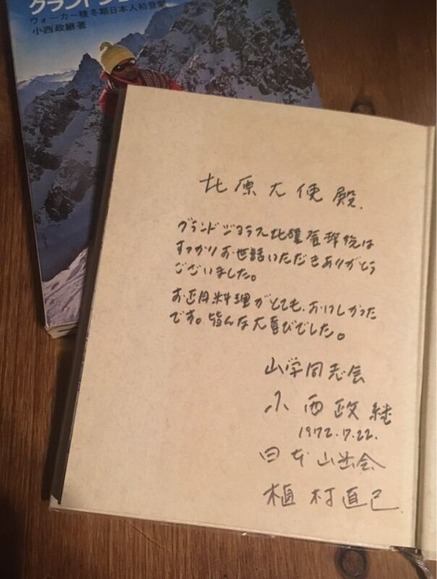 グランド
ウォーカー稜冬期日本人初登攀
小西政継著
北原大使殿.
グランドジョラス北壁登攀後は
すっかりお世話いただきありがとう
ございました。
お正月料理がとても、おいしかった
です。皆んな大喜びでした。
山学同志会
小西政継
1972.7.22.
日本山岳会
植村直己